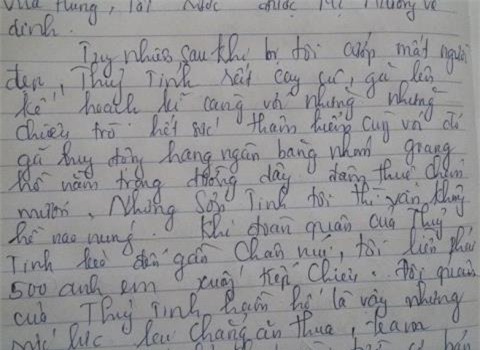 Vua Hùng, tôi rước được Mị Nương về
dinh.
Tuy nhiên, sau khi bị tôi cướp mất người
đẹp, Thuỷ Tinh rất cay cú, gã lên
kế hoạch từ căng với những những
chiêu trò hết sức thâm hiểm cùng với đó
gã huy động hàng ngàn băng nhóm giang
hồ nằm trong đường dây đâm thuê chém
mướn. Nhưng Sơn Tinh tôi thì vẫn không
hề nao núng. Khi đoàn quân của Thuỷ
Tinh kéo đến gần chân núi, tôi liền phái
500 anh em xuống tiếp chiêu. Đội quân
của Thuỷ Tinh hầm hố là vậy nhưng
chẳng ăn thua, team